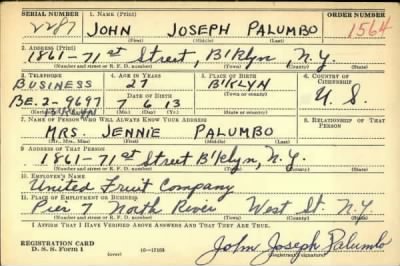 SERIAL NUMBER 1. NAME (Print) ORDER NUMBER
2287 JOHN JOSEPH PALUMBO 1564
(First) (Middle) (Last)
2. ADDRESS (Print)
1861-71st Street, B'klyn, N.Y.
(Number and street or R. F. D. number) (Town) (County) (State)
3. TELEPHONE 4. AGE IN YEARS 5. PLACE OF BIRTH 6. COUNTRY OF CITIZENSHIP
BUSINESS 27 B'KLYN
DATE OF BIRTH (Town or county) U. S.
BE. 2-9697 7 6 13
(Mo.) (Day) (Yr.) (State or country)
7. NAME OF PERSON WHO WILL ALWAYS KNOW YOUR ADDRESS 8. RELATIONSHIP OF THAT PERSON
MRS. JENNIE PALUMBO
(Mr., Mrs., Miss) (First) (Middle) (Last)
9. ADDRESS OF THAT PERSON
1861-71st Street B'klyn, N.Y.
(Number and street or R. F. D. number) (Town) (County) (State)
10. EMPLOYER'S NAME
United Fruit Company
11. PLACE OF EMPLOYMENT OR BUSINESS
Pier 7 North River West St. N.Y.
(Number and street or R. F. D. number) (Town) (County) (State)
I AFFIRM THAT I HAVE VERIFIED ABOVE ANSWERS AND THAT THEY ARE TRUE.
REGISTRATION CARD
D. S. S. Form 1 (over) 16-17105 John Joseph Palumbo
(Registrant's signature)